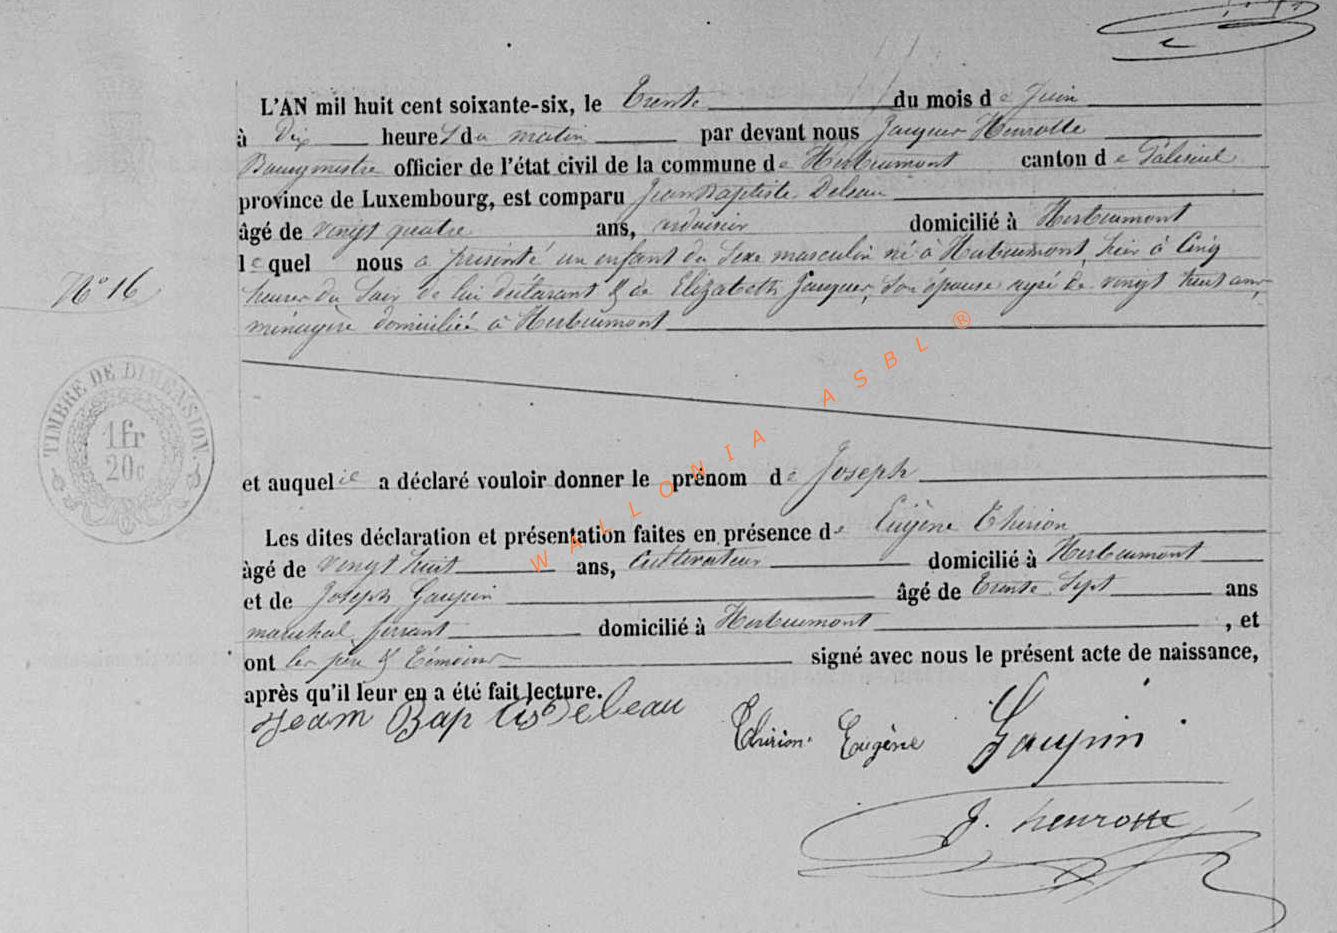 L'AN mil huit cent soixante-six, le Trente du mois de Juin
à Dix heures du matin par devant nous Jacques Henrotte
Bourgmestre officier de l'état civil de la commune de Herbeumont canton de Paliseul
province de Luxembourg, est comparu Jean Baptiste Deleau
âgé de vingt quatre ans, ardoisier domicilié à Herbeumont
lequel nous a présenté un enfant du sexe masculin né à Herbeumont, hier à Cinq
heures du Soir de lui déclarant & de Elizabeth Jacques, son épouse agée de vingt huit ans,
ménagère domiciliée à Herbeumont
N° 16
TIMBRE DE DIMENSION.
1fr
20c
et auquel il a déclaré vouloir donner le prénom de Joseph
Les dites déclaration et présentation faites en présence de Eugène Thirion
âgé de vingt huit ans, Cultivateur domicilié à Herbeumont
et de Joseph Gaupin âgé de trente Sept ans
marechal ferrant domicilié à Herbeumont, et
ont les père & témoins signé avec nous le présent acte de naissance,
après qu'il leur en a été fait lecture.
Jeam Bap tis Deleau Thirion Eugène Gaupin
J. henrotte
WALLONIA ASBL ®